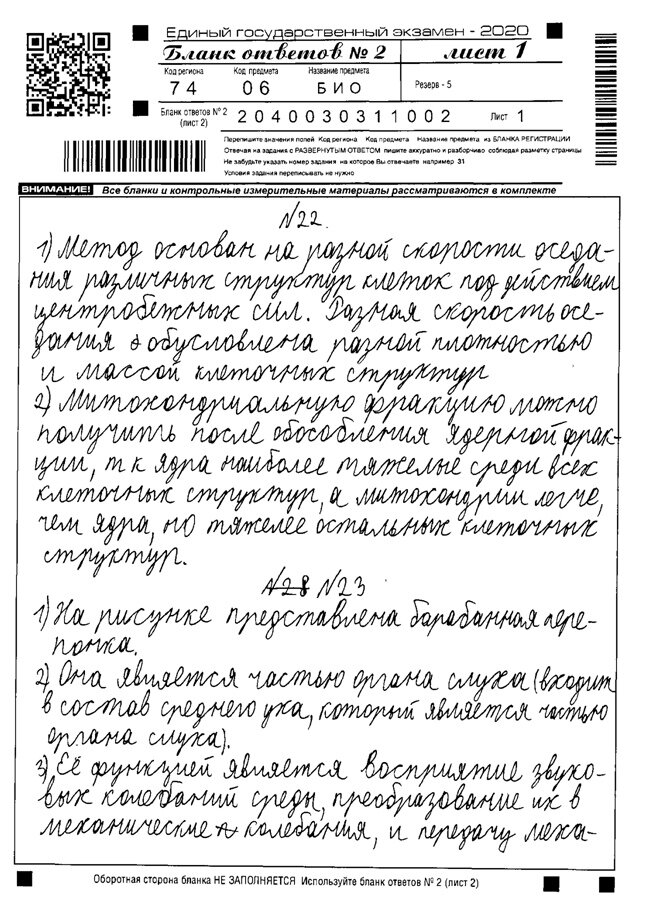 Единый государственный экзамен - 2020
Бланк ответов № 2 лист 1
Код региона Код предмета Название предмета
74 06 БИО Резерв - 5
Бланк ответов № 2 (лист 2) 2040030311002 Лист 1
Перепишите значения полей Код региона Код предмета Название предмета из БЛАНКА РЕГИСТРАЦИИ
Отвечая на задания с РАЗВЕРНУТЫМ ОТВЕТОМ пишите аккуратно и разборчиво соблюдая разметку страницы
Не забудьте указать номер задания на которое Вы отвечаете например 31
Условия задания переписывать не нужно
ВНИМАНИЕ! Все бланки и контрольные измерительные материалы рассматриваются в комплекте
№22.
1) Метод основан на разной скорости оседа-
ния различных структур клеток под действием
центробежных сил. Разная скорость осе-
дания обусловлена разной плотностью
и массой клеточных структур
2) Митохондриальную фракцию можно
получить после обособления ядерной фрак-
ции, т к ядра наиболее тяжелые среди всех
клеточных структур, а митохондрии легче,
чем ядра, но тяжелее остальных клеточных
структур.
№28 №23
1) На рисунке представлена барабанная пере-
понка.
2) Она является частью органа слуха (входит
в состав среднего уха, который является частью
органа слуха).
3) Её функцией является восприятие звуко-
вых колебаний среды, преобразование их в
механические колебания, и передачу меха-
Оборотная сторона бланка НЕ ЗАПОЛНЯЕТСЯ Используйте бланк ответов № 2 (лист 2)